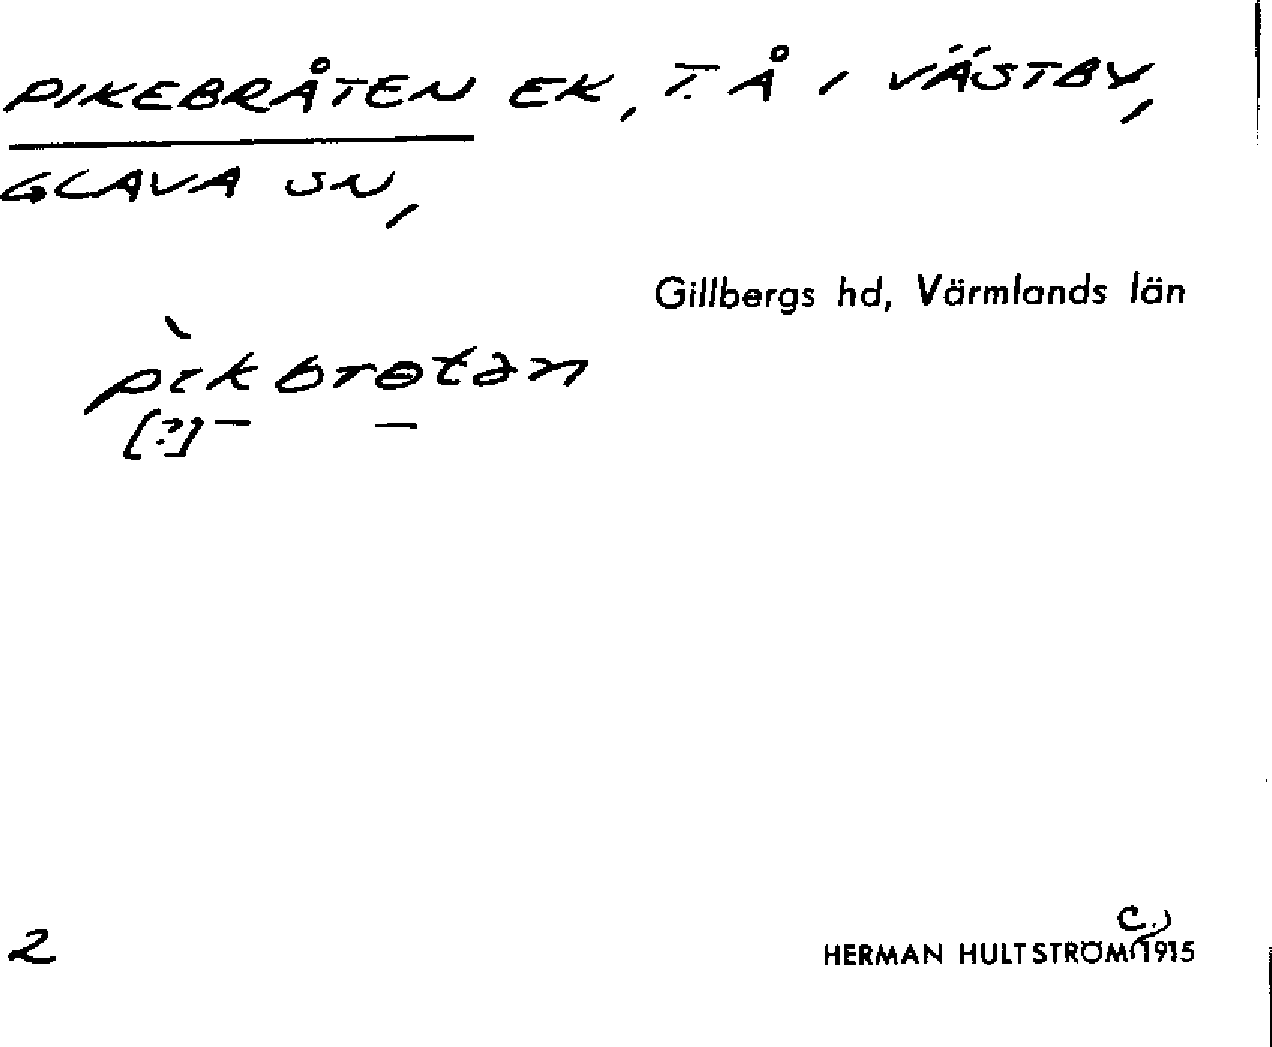 PIKEBRÅTEN EK, T. Å I VÄSTBY,
GLAVA SN,
Gillbergs hd, Värmlands län
p̀ɩkbrɵtən
[?]
2
HERMAN HULTSTRÖM C. 1915